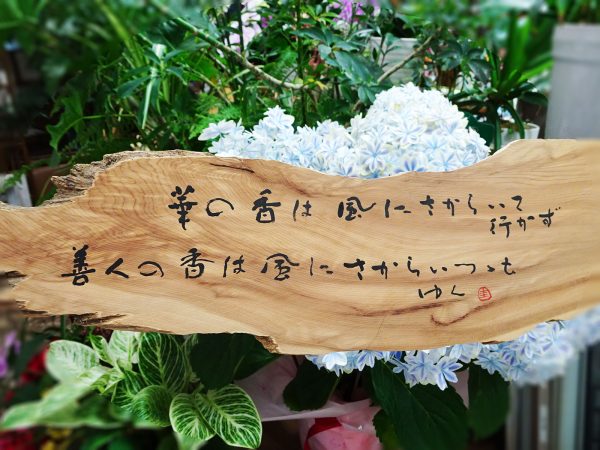 華の香は風にさからいて
行かず
善人の香は風にさからいつゝも
ゆく